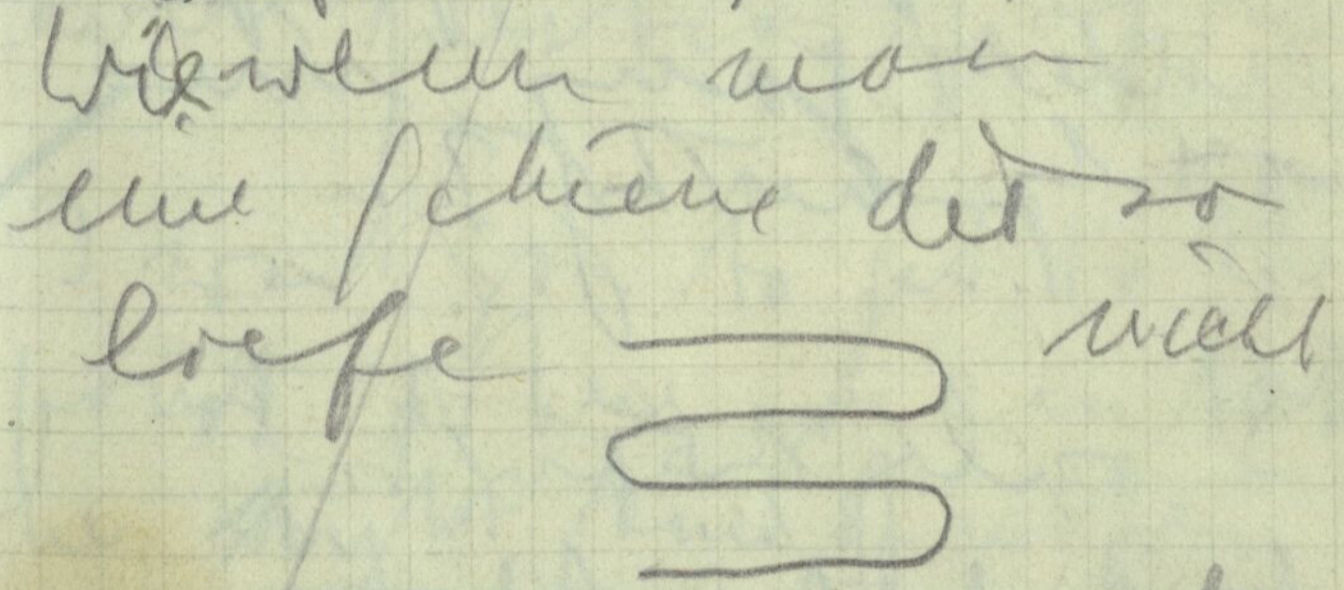 Wie wenn man
eine Schiene die so
liefe nicht